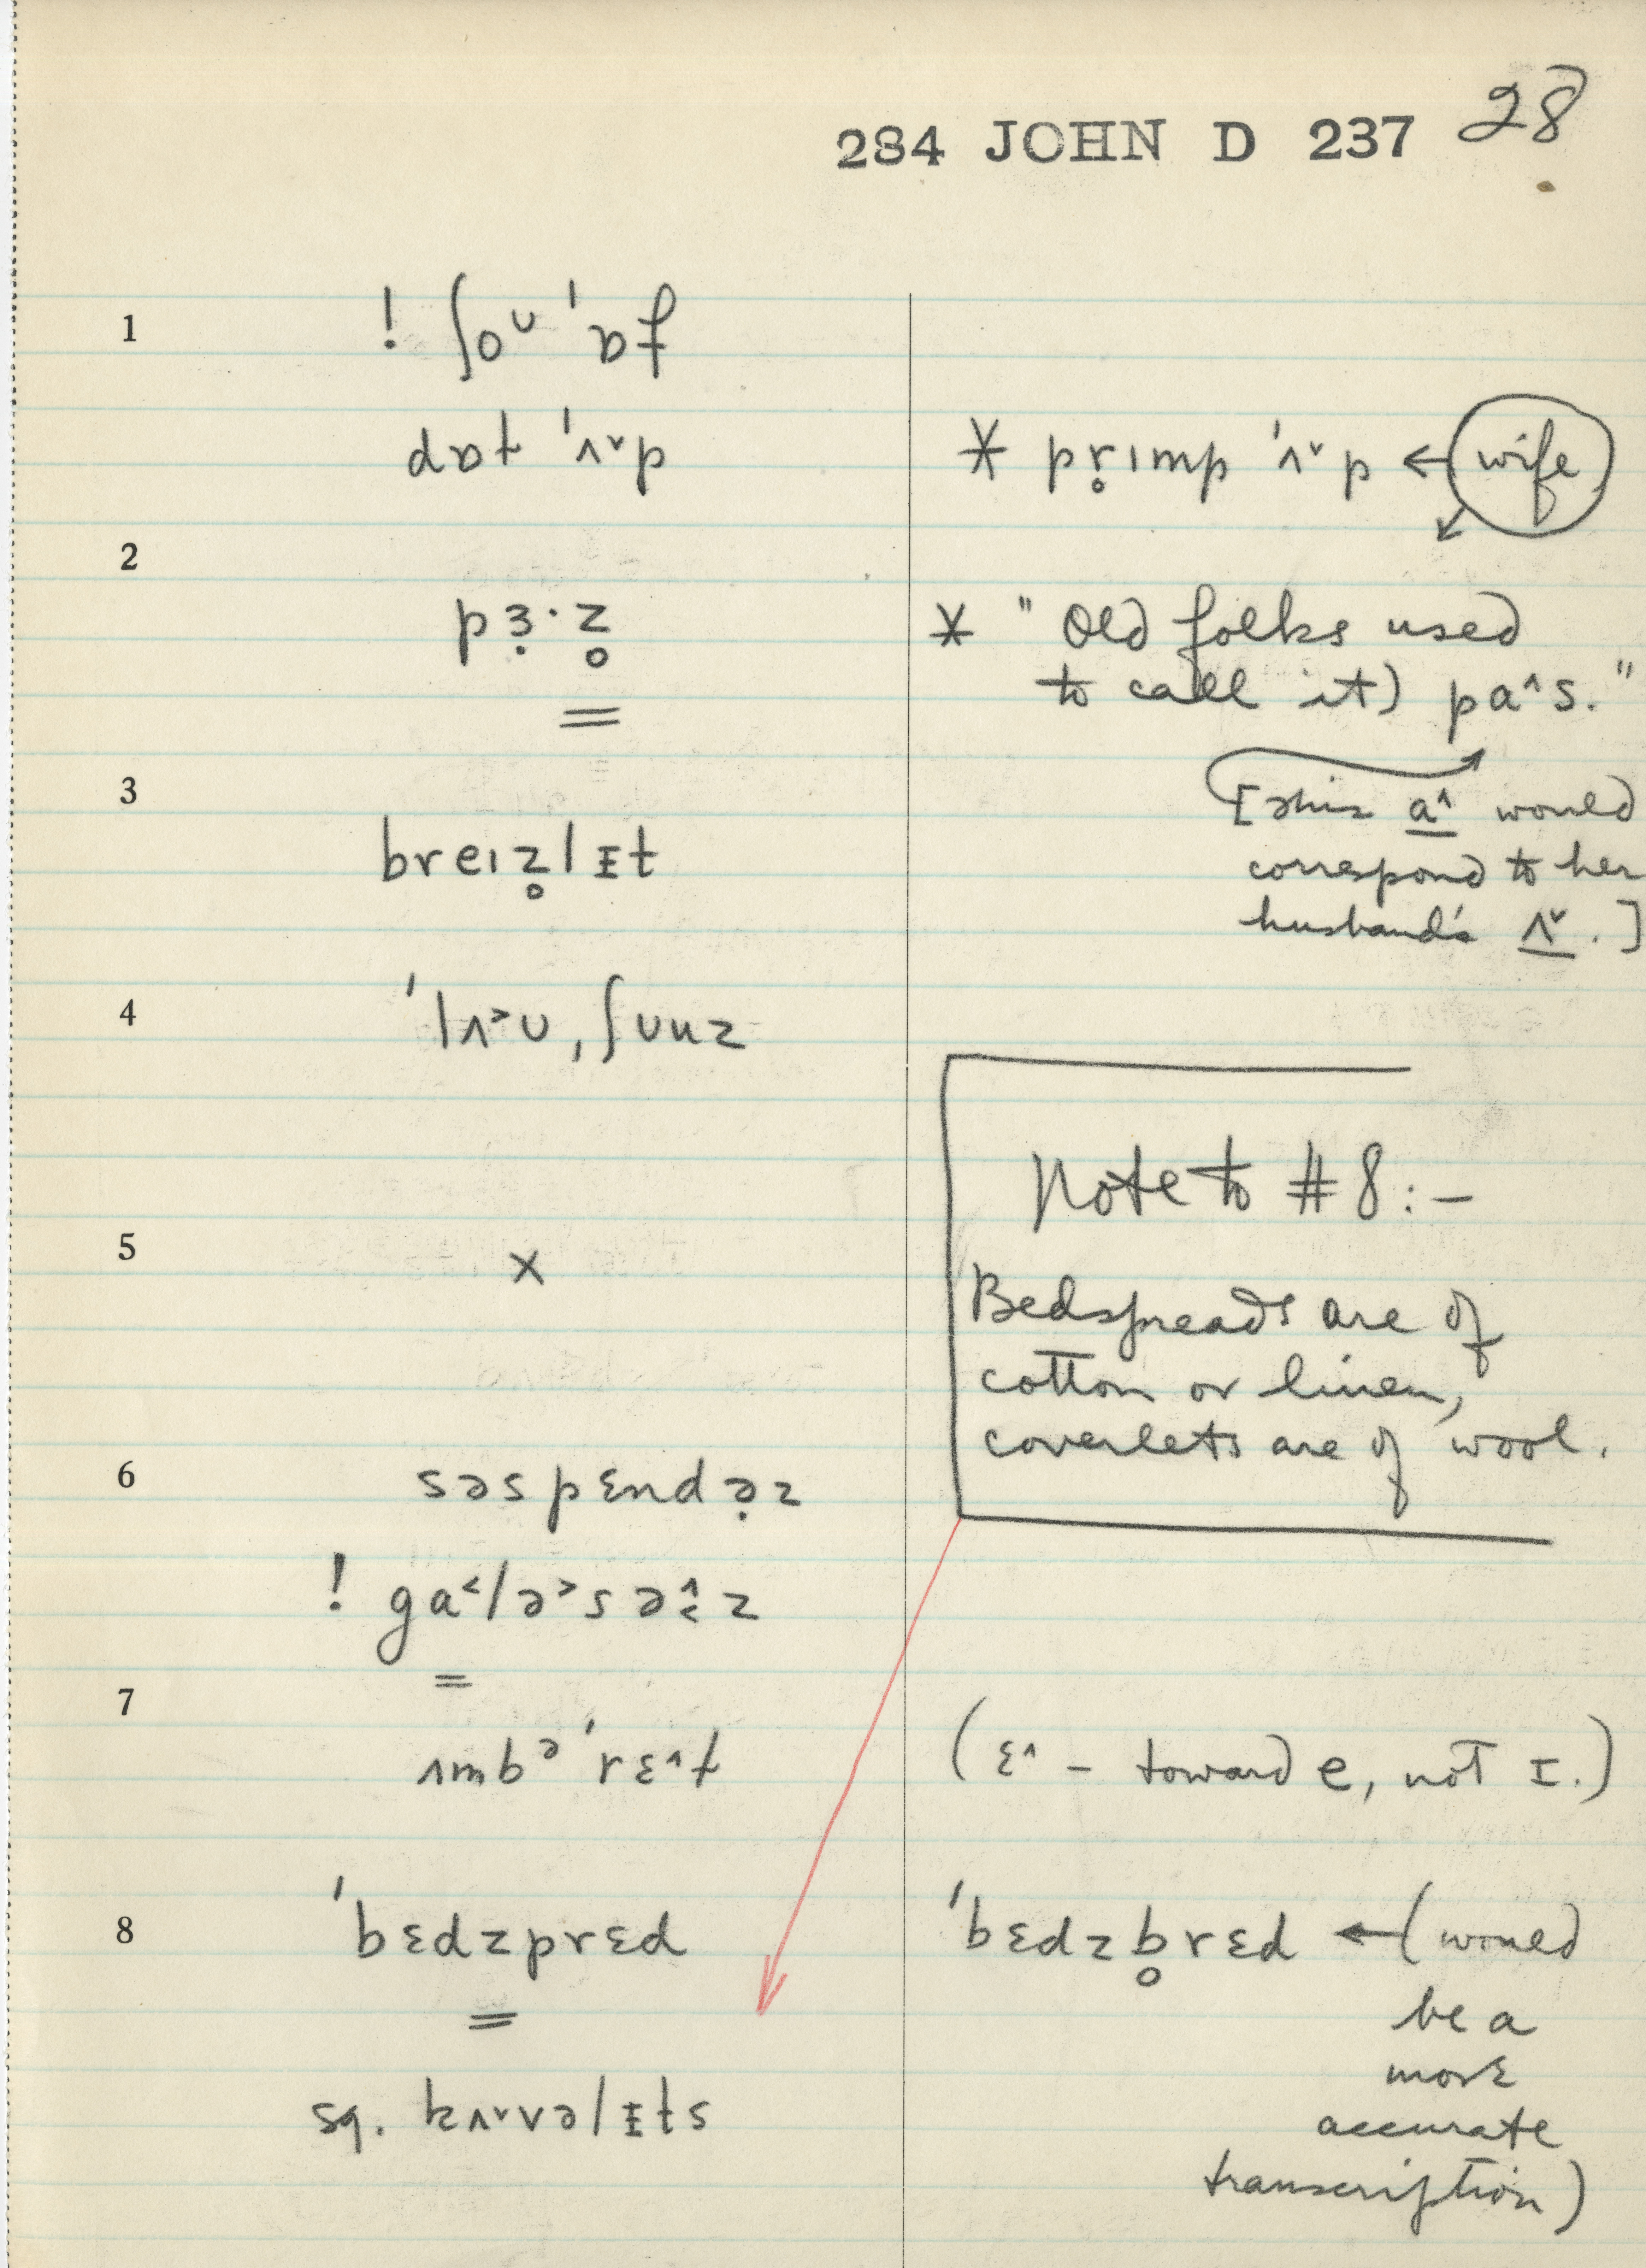 284 JOHN D 237 28
1 ! ʃoᴜ 'ɒf
dɒt 'ʌ˅p * pr̥ımp 'ʌ˅p ← wife
2
pɜ̣·z̥ * "Old folks used
= to call it) pa˄s."
3 [This a˄ would
breız̥lɪt correspond to her
husband's ʌ˅.]
4 'lʌ˃ᴜ,ʃᴜnz
Note to #8:–
5 x
Bedspreads are of
cotton or linen,
coverlets are of wool.
6 səspɛndə̣z
! ga˂lə˃səz
=
7
ʌmbə'rɛ˄t (ɛ˄ – toward e, not ɪ.)
8 'bɛdzprɛd 'bɛdzb̥rɛd ← (would
= be a
more
sq. kʌ˅vəlɪts accurate
transcription)